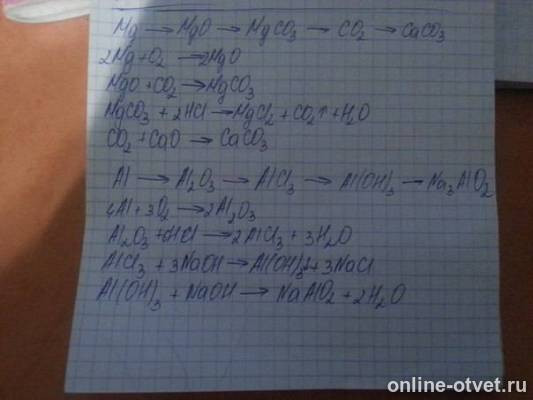 Mg → MgO → MgCO₃ → CO₂ → CaCO₃
2Mg + O₂ → 2MgO
MgO + CO₂ → MgCO₃
MgCO₃ + 2HCl → MgCl₂ + CO₂↑ + H₂O
CO₂ + CaO → CaCO₃
Al → Al₂O₃ → AlCl₃ → Al(OH)₃ → Na₃AlO₂
4Al + 3O₂ → 2Al₂O₃
Al₂O₃ + 6HCl → 2AlCl₃ + 3H₂O
AlCl₃ + 3NaOH → Al(OH)₃↓ + 3NaCl
Al(OH)₃ + NaOH → NaAlO₂ + 2H₂O
online-otvet.ru